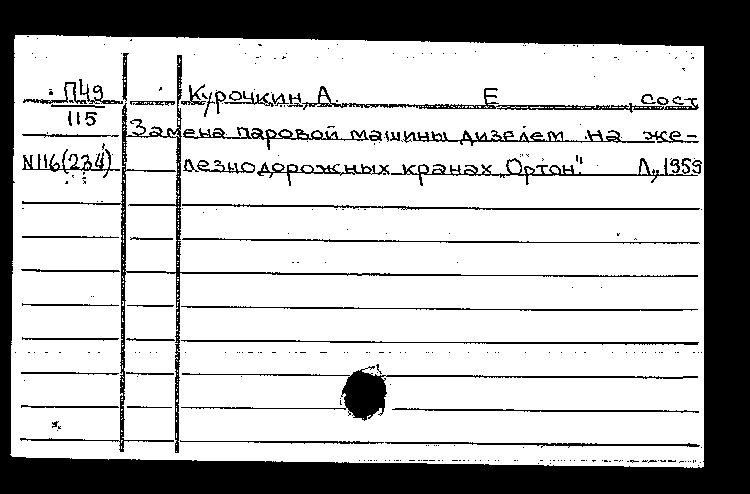 П49 Курочкин, А. Е сост
115
Замена паровой машины дизелем на же-
N116(234) лезнодорожных кранах „Ортон". Л., 1959